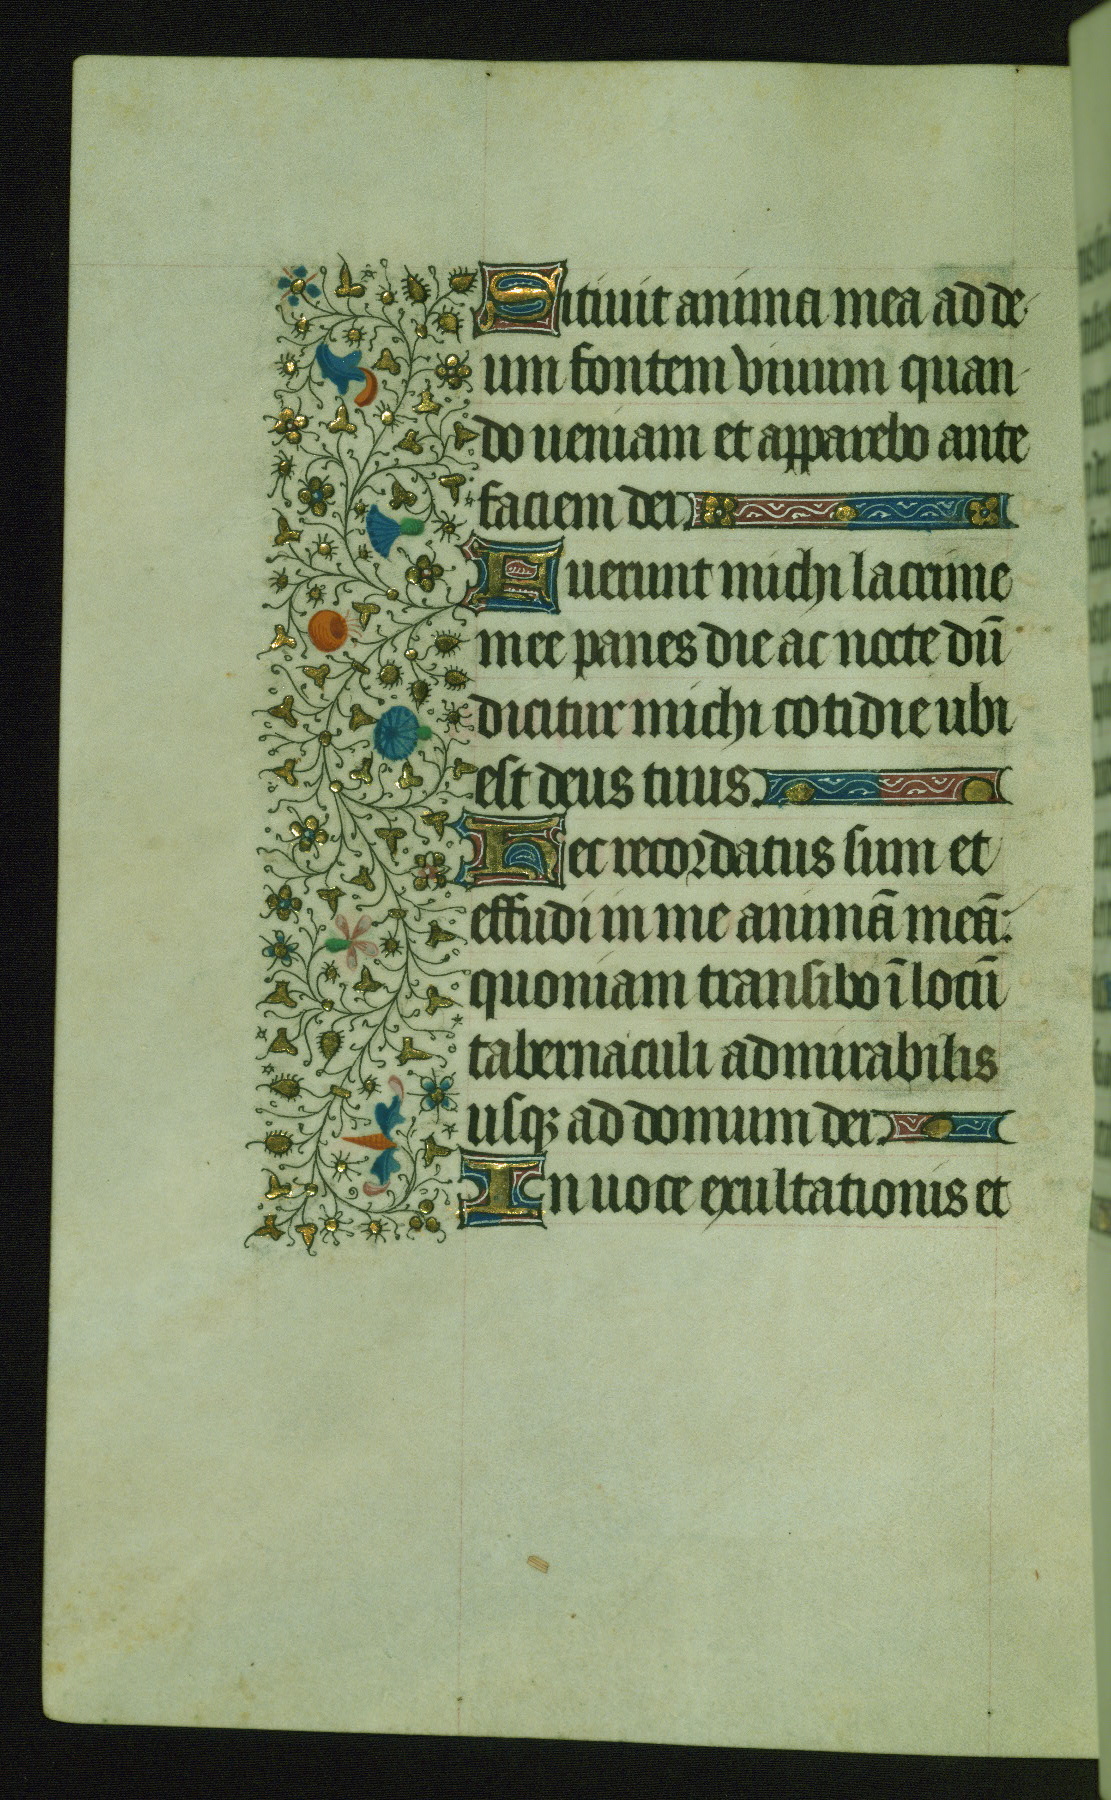 Sitiuit anima mea ad de
um fontem viuum quan
do ueniam et apparebo ante
faciem dei.
Fuerunt michi lacrime
mee panes die ac nocte dū
dicitur michi cotidie ubi
est deus tuus.
Hec recordatus sum et
effudi in me animā meā:
quoniam transibo ī locū
tabernaculi admirabilis
usqꝫ ad domum dei.
In uoce exultationis et